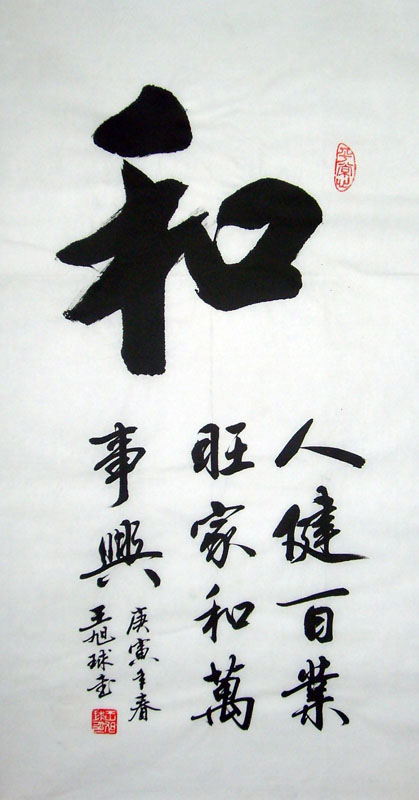 和
人健百業
旺家和萬
事興
庚寅年春
王旭球書